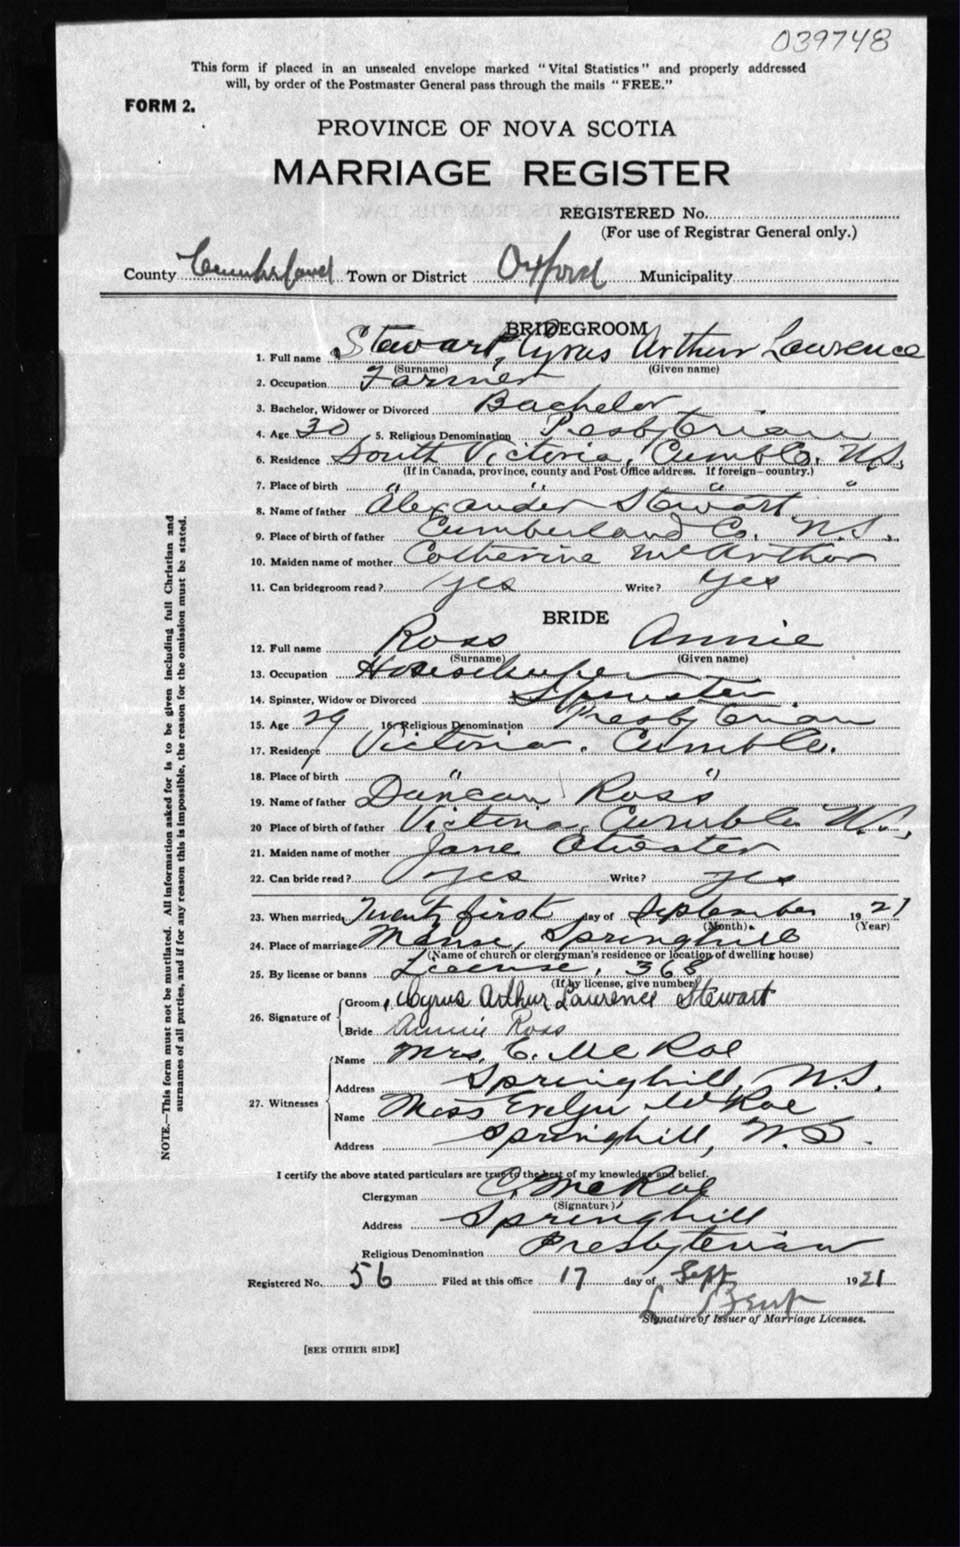 039748
This form if placed in an unsealed envelope marked "Vital Statistics" and properly addressed
will, by order of the Postmaster General pass through the mails "FREE."
FORM 2.
PROVINCE OF NOVA SCOTIA
MARRIAGE REGISTER
REGISTERED No.
(For use of Registrar General only.)
County Cumberland Town or District Oxford Municipality
BRIDEGROOM
1. Full name Stewart, Cyrus Arthur Lawrence
(Surname) (Given name)
2. Occupation Farmer
3. Bachelor, Widower or Divorced Bachelor
4. Age 30 5. Religious Denomination Presbyterian
6. Residence South Victoria, Cumb Co. N.S.
(If in Canada, province, county and Post Office address. If foreign—country.)
7. Place of birth " " " "
8. Name of father Alexander Stewart
9. Place of birth of father Cumberland Co. N.S.
10. Maiden name of mother Catherine McArthur
11. Can bridegroom read? yes Write? yes
BRIDE
12. Full name Ross Annie
(Surname) (Given name)
13. Occupation Housekeeper
14. Spinster, Widow or Divorced Spinster
15. Age 29 16. Religious Denomination Presbyterian
17. Residence Victoria, Cumb Co.
18. Place of birth " "
19. Name of father Duncan Ross
20 Place of birth of father Victoria, Cumb Co N.S.
21. Maiden name of mother Jane Atwater
22. Can bride read? yes Write? yes
23. When married, Twenty first day of September 1921
(Month) (Year)
24. Place of marriage Manse, Springhill
(Name of church or clergyman's residence or location of dwelling house)
25. By license or banns License, 368
(If by license, give number)
26. Signature of
Groom Cyrus Arthur Lawrence Stewart
Bride Annie Ross
27. Witnesses
Name Mrs. C. McRae
Address Springhill, N.S.
Name Miss Evelyn McRae
Address Springhill, N.S.
I certify the above stated particulars are true to the best of my knowledge and belief.
Clergyman McRae
(Signature)
Address Springhill
Religious Denomination Presbyterian
Registered No. 56 Filed at this office 17 day of Sept 1921
Signature of Issuer of Marriage Licenses.
[SEE OTHER SIDE]
NOTE.—This form must not be mutilated. All information asked for is to be given including full Christian and
surnames of all parties, and if for any reason this is impossible, the reason for the omission must be stated.